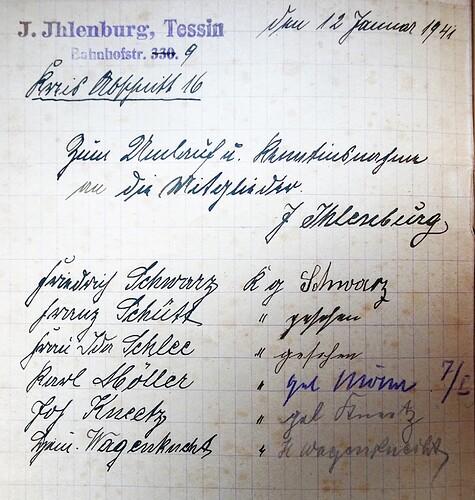 J. Jhlenburg, Tessin
Bahnhofstr. 330. 9
den 12 Januar 1941
Kreis Abschnitt 16
Zum Umlauf u. Kenntinsnahme
an die Mitglieder.
J Ihlenburg
Friedrich Schwarz K g Schwarz
Franz Schütt " gesehen
Frau Ida Schlee " gesehen
Karl Möller " gel Möller 7/I
Jos Kneetz " gel Kneetz
Hein. Wagenknecht " H Wagenknecht